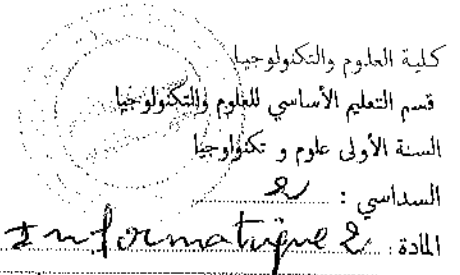 كلية العلوم والتكنولوجيا
قسم التعليم الأساسي للعلوم والتكنولوجيا
السنة الأولى علوم و تكنولوجيا
السداسي : 2
المادة : Informatique 2